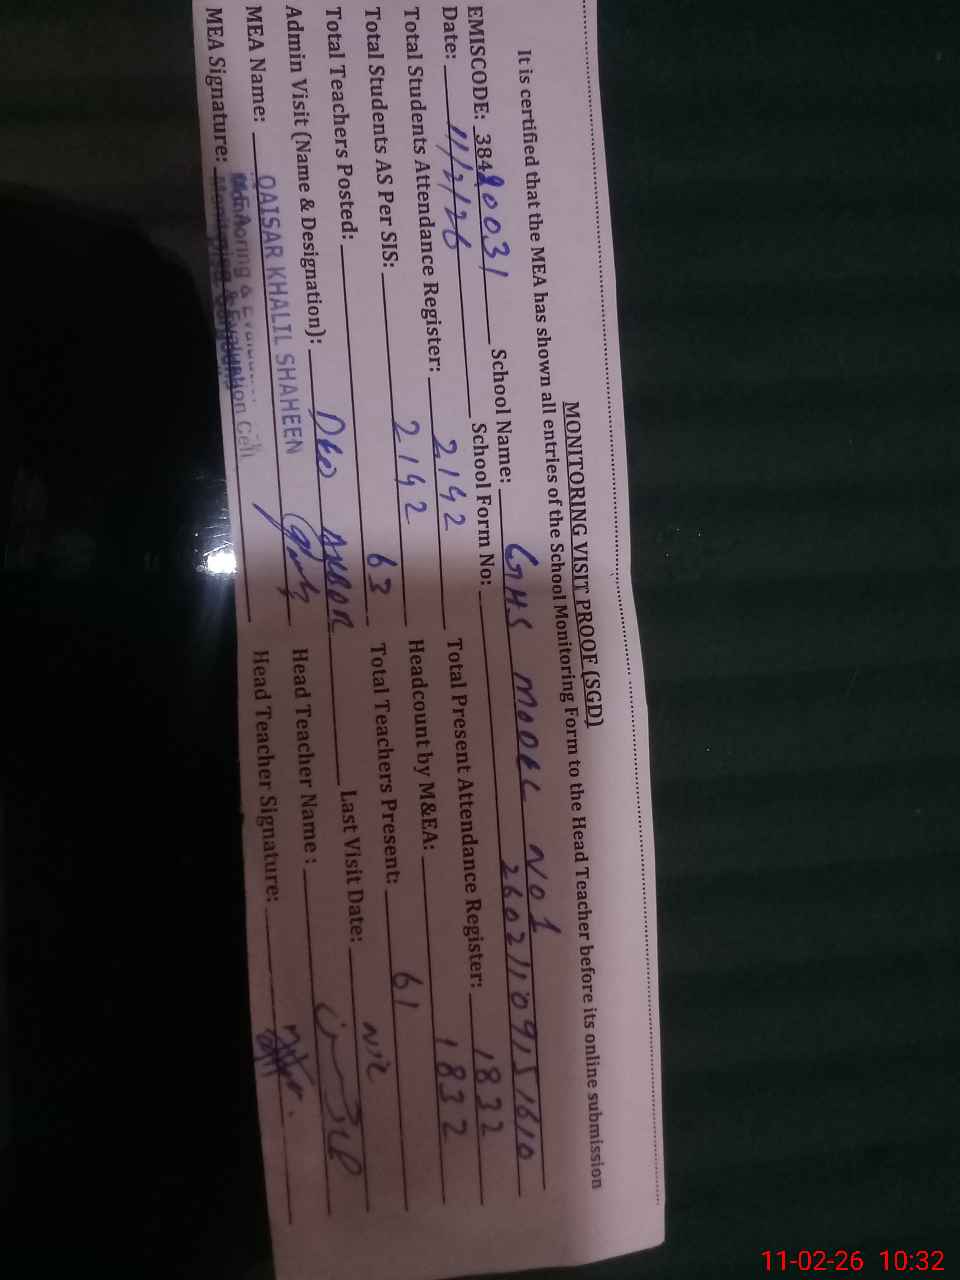 MONITORING VISIT PROOF (SGD)
It is certified that the MEA has shown all entries of the School Monitoring Form to the Head Teacher before its online submission
EMISCODE: 38420031 School Name: GHS MODEL NO 1
Date: 11/2/26 School Form No: 26021109151610
Total Students Attendance Register: 2142 Total Present Attendance Register: 1832
Total Students AS Per SIS: 2142 Headcount by M&EA: 1832
Total Teachers Posted: 63 Total Teachers Present: 61
Admin Visit (Name & Designation): DEO Last Visit Date: Nil
MEA Name: QAISAR KHALIL SHAHEEN Head Teacher Name :
MEA Signature: Monitoring & Evaluation Cell Head Teacher Signature:
11-02-26 10:32